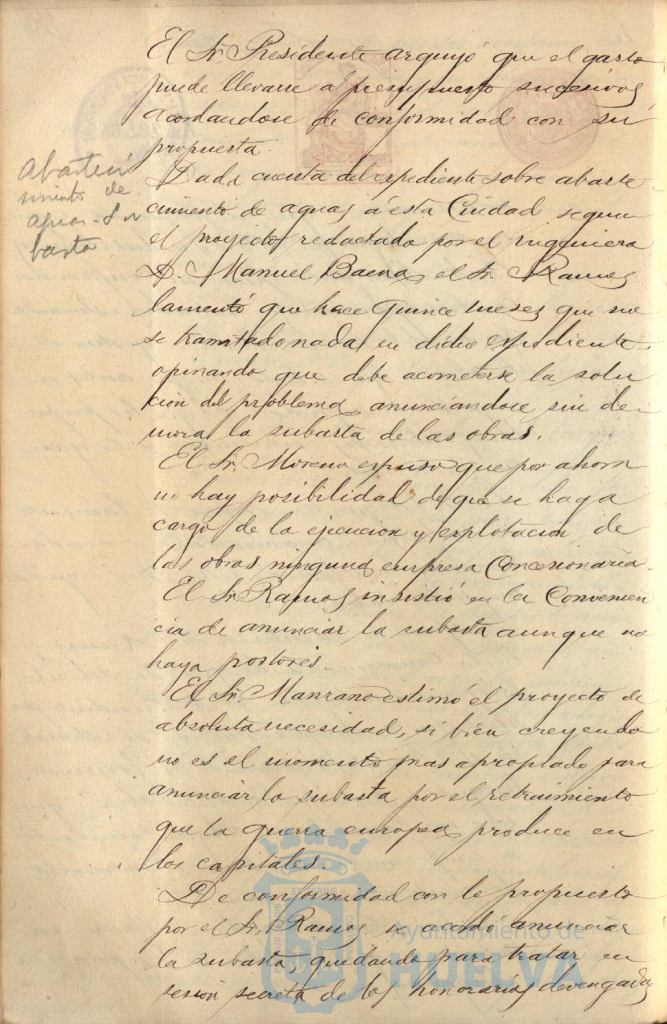 El Sr. Presidente arguyó que el gasto
puede llevarse a presupuestos sucesivos
acordandose de conformidad con su
propuesta.
Abasteci
miento de
aguas - Su
basta
Dada cuenta del expediente sobre abaste
cimiento de aguas á esta Ciudad segun
el proyecto redactado por el ingeniero
D. Manuel Baena, el Sr. Ramos
lamentó que hace quince meses que no
se tramitado nada en dicho expediente,
opinando que debe acometerse la solu
cion del problema, anunciandose sin de
mora la subasta de las obras.
El Sr. Moreno expuso que por ahora
no hay posibilidad de que se haga
cargo de la ejecucion y explotacion de
las obras ninguna empresa Concesionaria.
El Sr. Ramos insistió en la Convenien
cia de anunciar la subasta aunque no
haya postores.
El Sr. Manzano estimó el proyecto de
absoluta necesidad, si bien creyendo
no es el momento mas apropiado para
anunciar la subasta por el retraimiento
que la guerra europea produce en
los capitales.
De conformidad con lo propuesto
por el Sr. Ramos se acordó anunciar
la subasta, quedando para tratar en
sesion secreta de los honorarios devengados
Ayuntamiento de
HUELVA